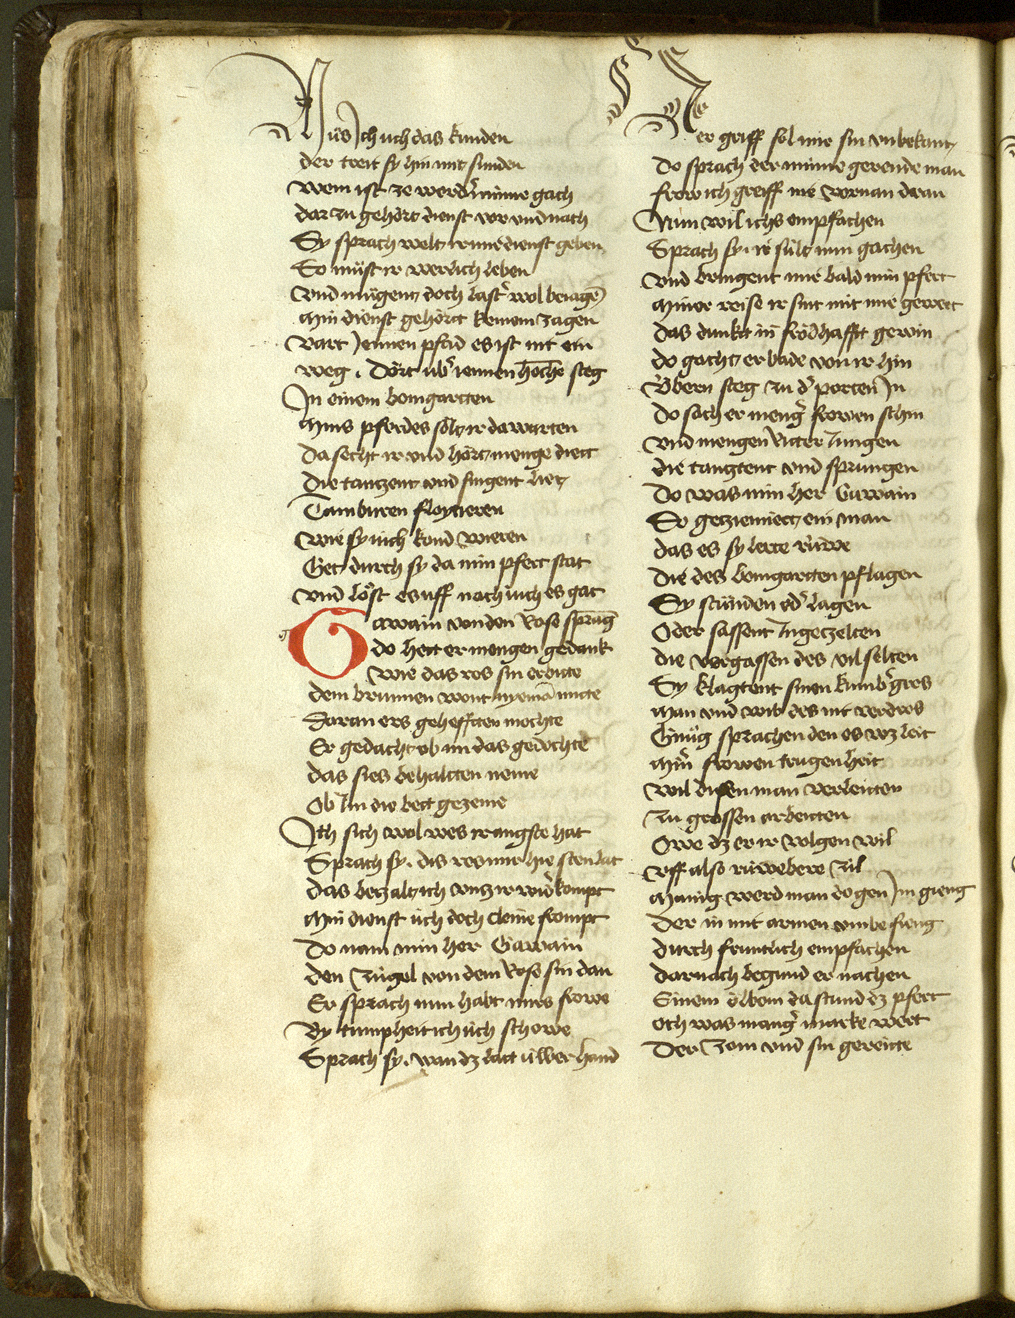 Müs ich uch das kunden
der treit sy hin mit sunden
Wem ist ze werdeͬ minne gach
dar zu gehört dienst vor vnd nach
Sy sprach welt ir mir dienst geben
So müst ir werlich leben
vnd mügent doch lasteͬ wol beiagē
Min dienst gehört keinem zagen
Vart Jennen pfad es ist nit ein
weg . Dört vbeͬ iennen hoche steg
In einem bomgartten
Mins pferdes sölt ir da warten
Da secht ir vnd hört menge diett
Die tantzent vnd singent liet
Tamburen floytieren
Wie sy iuch kond wieren
Get durch sy da min pfert stat
vnd löst es uff nach iuch es gat
Gawain von den Rose sprang
do hett er mengen gedank
Wie das ros sin erbitte
dem brunnen wont nyemā mitte
Daran ers gehefften mochte
Er gedacht ob im das gedochte
das sies behaltten neme
Ob Im die bett gezeme
Ich sich wol wes ir angste hat
Sprach sy . dis ros mir hie sten lat
das behalt ich vntz ir widͬ kompt
Min dienst uch doch cleine frompt
Do nam min her Gawain
den zügel von dem Rose sin dan
Er sprach nun habt mirs frowe
By tumpheit ich üch schowe
Sprach sy . wan dz latt üwer hand
Der griff sol mir sin vnbekant
Do sprach der minne gerende man
frow ich greiff nie vornan daran
Nun wil ichs empfachen
Sprach sy . ir sült nun gachen
vnd bringent mir bald min pfert
Miner reise ir sint mit mir gewert
das dunkt in frödhafft gewin
do gacht er balde von ir hin
Vbern steg zu dͬ porten In
do sach er mengeͬ frowen schin
vnd mengen Ritter Jungen
die tanztent vnd sprungen
Do was min her Gawain
So gezimiert ein man
das es sy lerte rüwe
Die des bomgartten pflagen
Sy stünden odͬ lagen
Oder sassent In gezelten
die vergassen des vil selten
Sy klagtent sinen kumbeͬ gros
Man vnd wib des nit verdros
Gnüg sprachen den es wz leit
Mineͬ frowen trugenheit
wil disen man verleitten
zu grossen arbeiten
Owe dz er ir volgen wil
vff also rüwebere Zil
Manig werd man do gen Im gieng
Der in mit armen vmbefieng
durch fruntlich empfachen
darnach begund er nachen
Einem ölbom da stund dz pfert
och was mangeͬ marke wert
Der Zom vnd sin gereitte